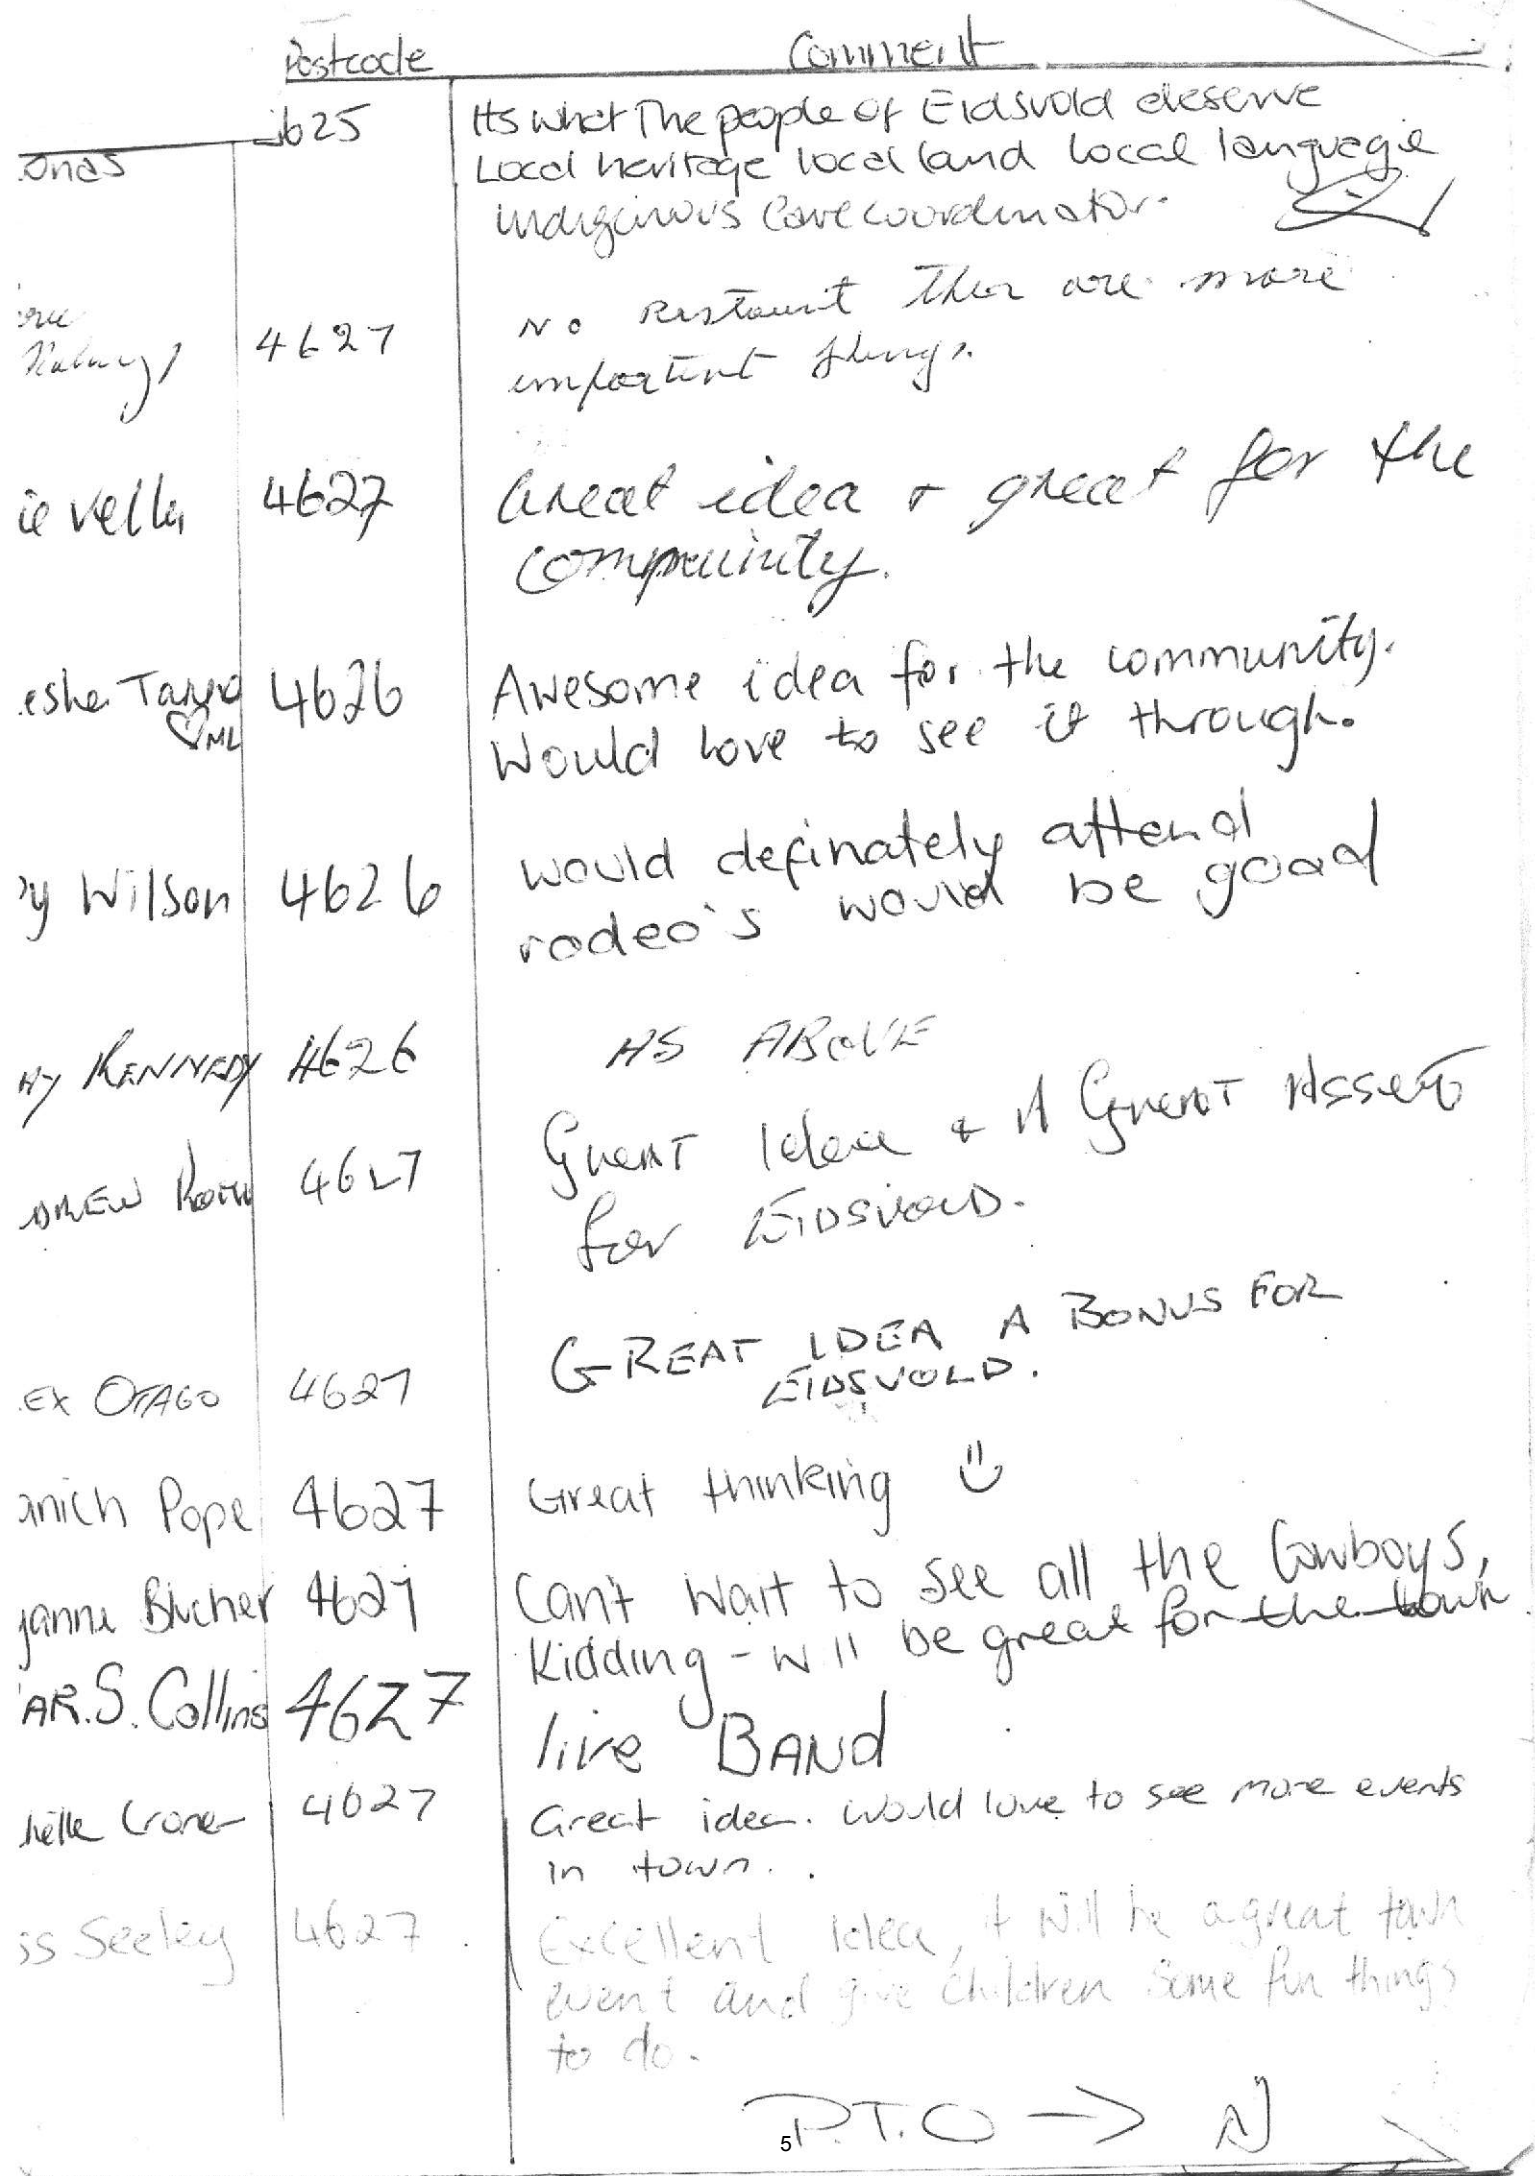 Postcode Comment
625 Its what The people of Eidsvold deserve
onas Local heritage local land local language
indiginous Care coordinator.
4627 No Restaurnt Ther are more
importent things.
ie Vella 4627 Great idea + great for the
community.
esha 4626 Awesome idea for the community.
♡ ML Would love to see it through.
y Wilson 4626 would definately attend
rodeo's would be good
ny KENNEDY 4626 AS ABOVE
DREW 4627 Great Idea + A Great Asset
for EIDSVOLD.
EX OTAGO 4627 GREAT IDEA A BONUS FOR
EIDSVOLD.
anich Pope 4627 Great thinking
yanne Blucher 4627 Can't wait to see all the Cowboys,
Kidding - will be great for the town
AR.S. Collins 4627 live BAND
helle 4627 Great idea. Would love to see more events
in town.
ss Seeley 4627. Excellent Idea, it will be a great town
event and give children some fun things
to do.
P.T.O →
5